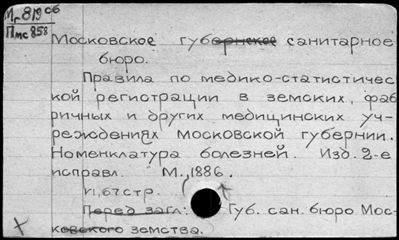 М 819 сб
Пмс 858
Московское губернское санитарное
бюро.
Правила по медико-статистичес
кой регистрации в земских, фаб
ричных и других медицинских уч-
реждениях Московской губернии.
Номенклатура болезней. Изд. 2-е
исправл. М., 1886.
стр.
Перед загл.: Губ. сан. бюро Мос-
ковского земства.